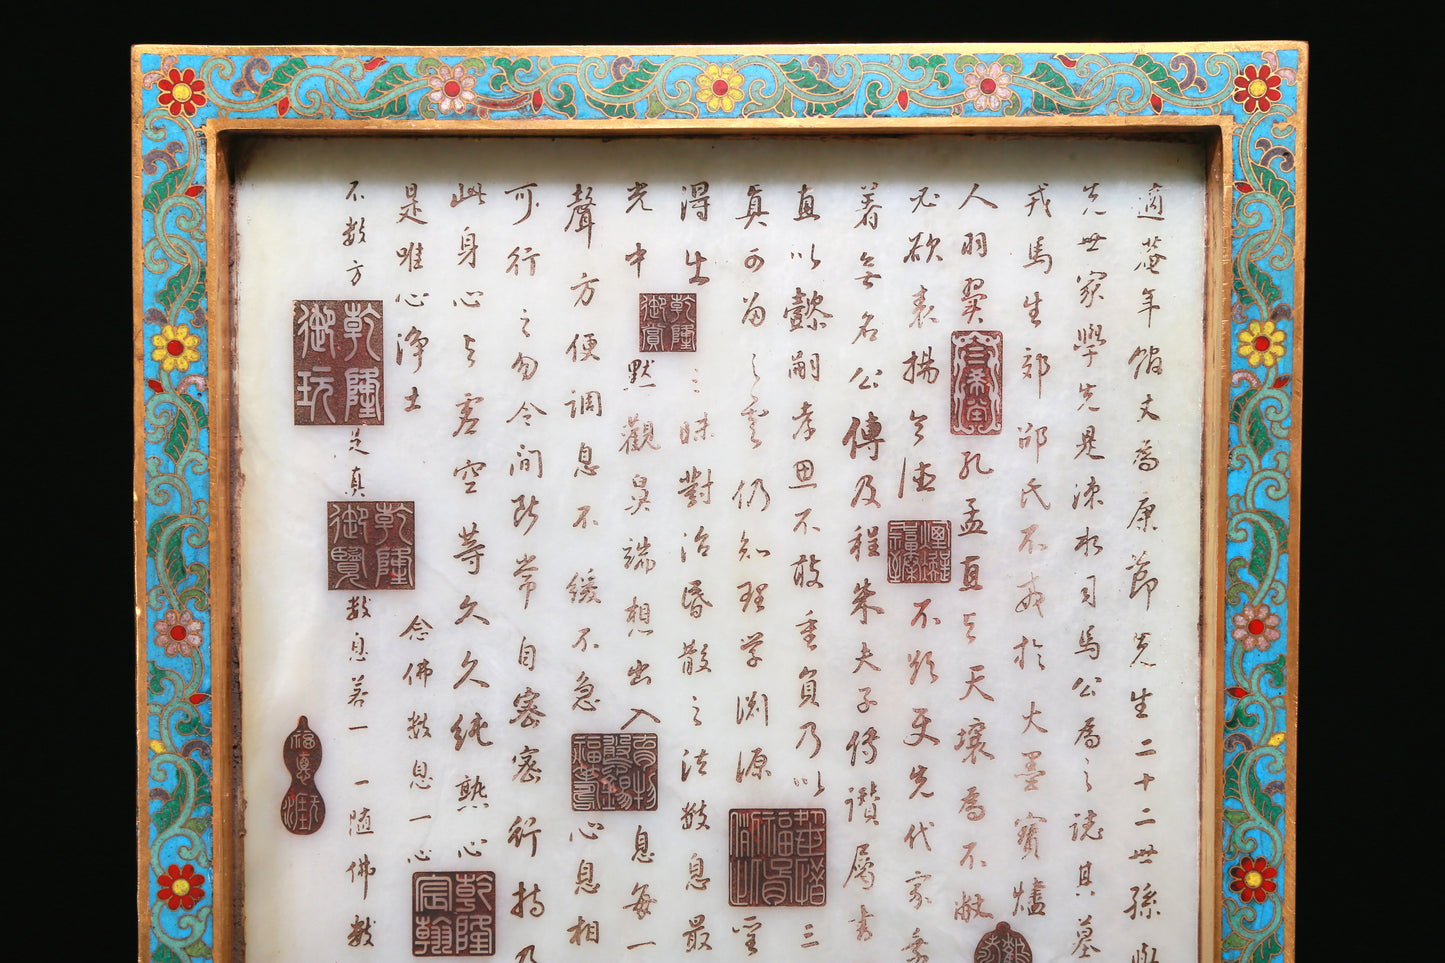 適菴年館丈為康節先生二十二世孫
先世家學先是涑水司馬公為之誌其墓
戎馬生郊邵氏不戒於大墨寶爐
人羽翼孔孟直与天壤為不敝
必欲表揚令德不顯先代家
著無名公傳及程朱夫子傳讚屬書
直以懿嗣孝思不敢重負乃以三
真可為仍知理学渊源
乾隆御賞
得生三昧對治昏散之法數息最
光中默觀鼻端想出入息每一
聲方便調息不緩不急心息相
可行之勿令间断常自密密行持乃
此身心与虛空等久久純熟心
乾隆宸翰
是唯心淨土念佛數息一心
不數方是真數息若一一随佛數
乾隆御玩
乾隆御覽